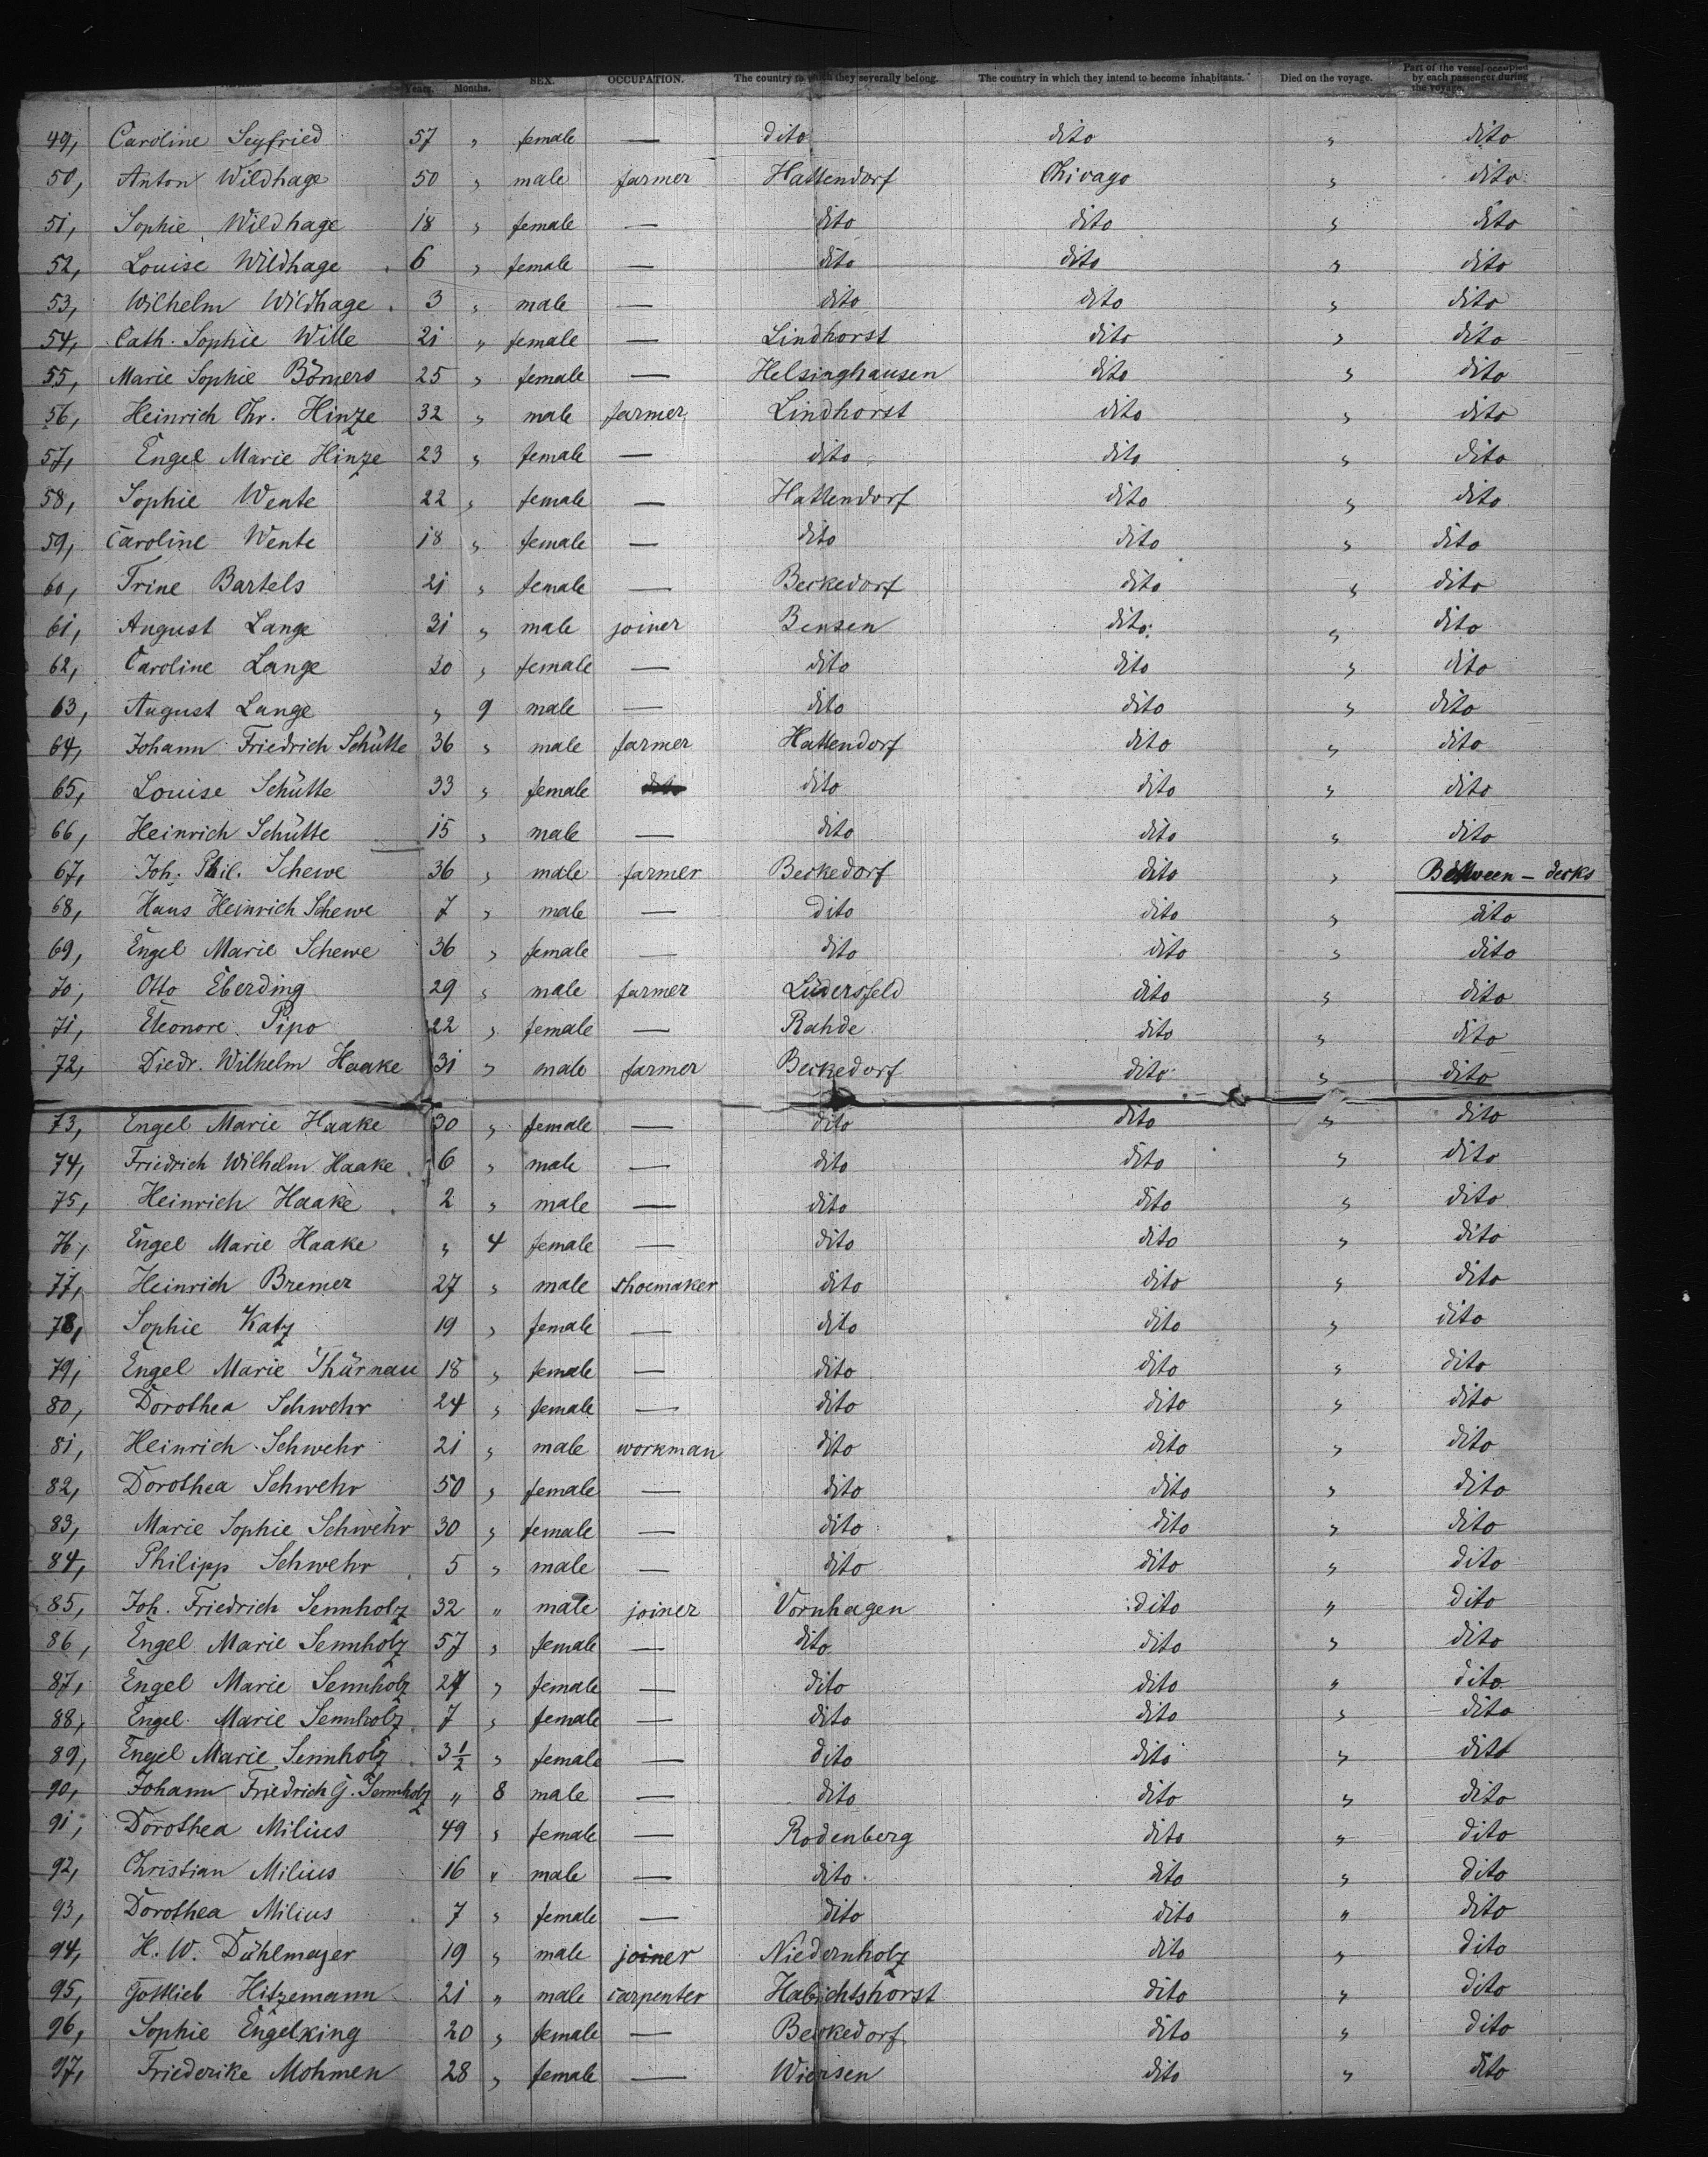 Years. Months. SEX. OCCUPATION. The country to which they severally belong. The country in which they intend to become inhabitants. Died on the voyage. Part of the vessel occupied by each passenger during the voyage.
49, Caroline Segfried 57 " female — dito dito " dito
50, Anton Wildhage 50 " male farmer Hattendorf Chicago " dito
51, Sophie Wildhage 18 " female — dito dito " dito
52, Louise Wildhage 6 " female — dito dito " dito
53, Wilhelm Wildhage 3 " male — dito dito " dito
54, Cath. Sophie Wille 21 " female — Lindhorst dito " dito
55, Marie Sophie Börners 25 " female — Helsinghausen dito " dito
56, Heinrich Chr. Hinze 32 " male farmer Lindhorst dito " dito
57, Engel Marie Hinze 23 " female — dito dito " dito
58, Sophie Wente 22 " female — Hattendorf dito " dito
59, Caroline Wente 18 " female — dito dito " dito
60, Trine Bartels 21 " female — Beckedorf dito " dito
61, August Lange 31 " male joiner Bensen dito " dito
62, Caroline Lange 30 " female — dito dito " dito
63, August Lange " 9 male — dito dito " dito
64, Johann Friedrich Schütte 36 " male farmer Hattendorf dito " dito
65, Louise Schütte 33 " female dito dito " dito
66, Heinrich Schütte 15 " male — dito dito " dito
67, Joh. Phil. Schewe 36 " male farmer Beckedorf dito " Between-decks
68, Hans Heinrich Schewe 7 " male — dito dito " dito
69, Engel Marie Schewe 36 " female — dito dito " dito
70, Otto Eberding 29 " male farmer Lüdersfeld dito " dito
71, Eleonore Pipo 22 " female — Rahde dito " dito
72, Diedr. Wilhelm Haake 31 " male farmer Beckedorf dito " dito
73, Engel Marie Haake 30 " female — dito dito " dito
74, Friedrich Wilhelm Haake 6 " male — dito dito " dito
75, Heinrich Haake 2 " male — dito dito " dito
76, Engel Marie Haake " 4 female — dito dito " dito
77, Heinrich Bremer 27 " male shoemaker dito dito " dito
78, Sophie Katz 19 " female — dito dito " dito
79, Engel Marie Thürnau 18 " female — dito dito " dito
80, Dorothea Schwehr 24 " female — dito dito " dito
81, Heinrich Schwehr 21 " male workman dito dito " dito
82, Dorothea Schwehr 50 " female — dito dito " dito
83, Marie Sophie Schwehr 30 " female — dito dito " dito
84, Philipp Schwehr 5 " male — dito dito " dito
85, Joh. Friedrich Sennholz 32 " male joiner Vornhagen dito " dito
86, Engel Marie Sennholz 57 " female — dito dito " dito
87, Engel Marie Sennholz 27 " female — dito dito " dito
88, Engel Marie Sennholz 7 " female — dito dito " dito
89, Engel Marie Sennholz 3½ " female — dito dito " dito
90, Johann Friedrich G. Sennholz " 8 male — dito dito " dito
91, Dorothea Milius 49 " female — Rodenberg dito " dito
92, Christian Milius 16 " male — dito dito " dito
93, Dorothea Milius 7 " female — dito dito " dito
94, H. W. Dühlmeyer 19 " male joiner Niedernholz dito " dito
95, Gottlieb Hitzemann 21 " male carpenter Habichtshorst dito " dito
96, Sophie Engelking 20 " female — Beckedorf dito " dito
97, Friederike Mohmen 28 " female — Wiersen dito " dito